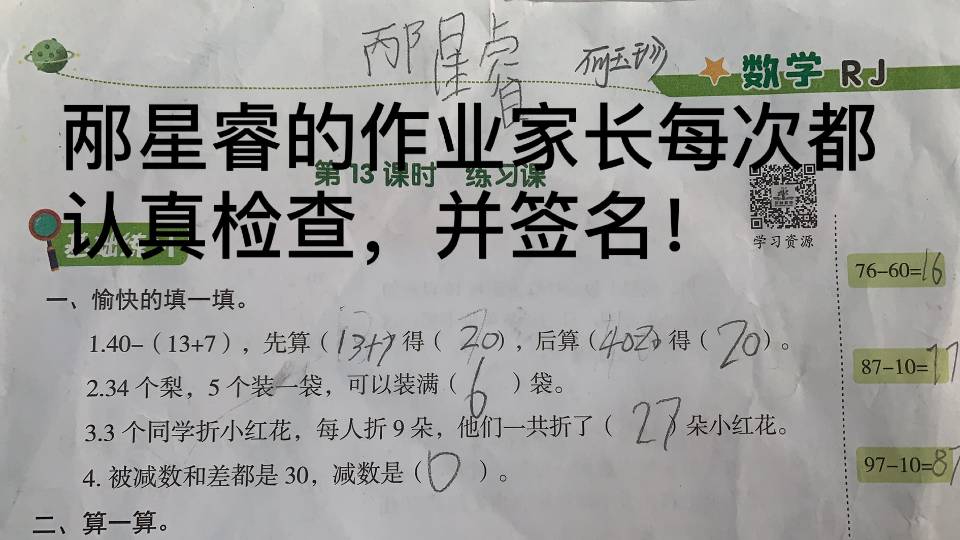 邴星睿 何玉珍
数学 RJ
邴星睿的作业家长每次都
第 13 课时 练习课
认真检查，并签名！
学习资源
一、愉快的填一填。
1.40-（13+7），先算（13+7）得（20），后算（40-20）得（20）。
2.34 个梨，5 个装一袋，可以装满（6）袋。
3.3 个同学折小红花，每人折 9 朵，他们一共折了（27）朵小红花。
4. 被减数和差都是 30，减数是（0）。
二、算一算。
76-60=16
87-10=77
97-10=87